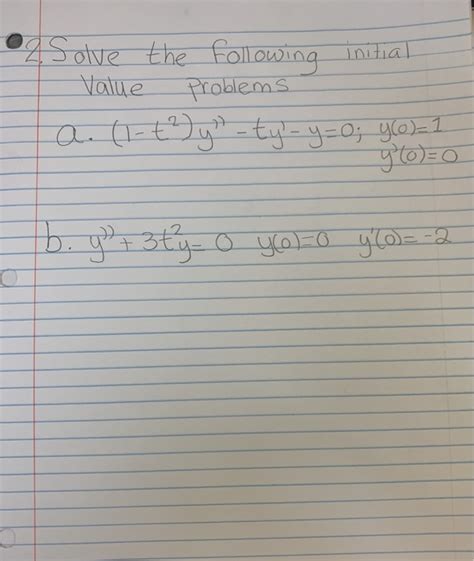 2. Solve the following initial
Value Problems
a. (1-t²)y'' - ty' - y=0; y(0)=1
y'(0)=0
b. y'' + 3t²y= 0 y(0)=0 y'(0)= -2